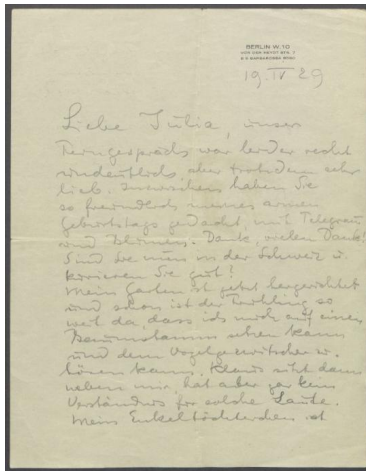 BERLIN W. 10
VON DER HEYDT STR. 7
19. IV 29
Liebe Julia, unser
Ferngespräch war leider recht
undeutlich, aber trotzdem sehr
lieb. Inzwischen haben Sie
so freundlich meines armen
Geburtstags gedacht, mit Telegram
und Blumen. Dank, vielen Dank!
Sind Sie nun in der Schweiz u.
kurieren Sie gut?
Mein Garten ist jetzt hergerichtet
und schon ist der Frühling so
weit da, dass ich mich auf einen
Baumstamm setzen kann
und dem Vogelgezwitscher zu-
hören kann. Klaus sitzt dann
neben mir, hat aber gar kein
Verständnis für solche Laute.
Mein Enkeltöchterchen ist